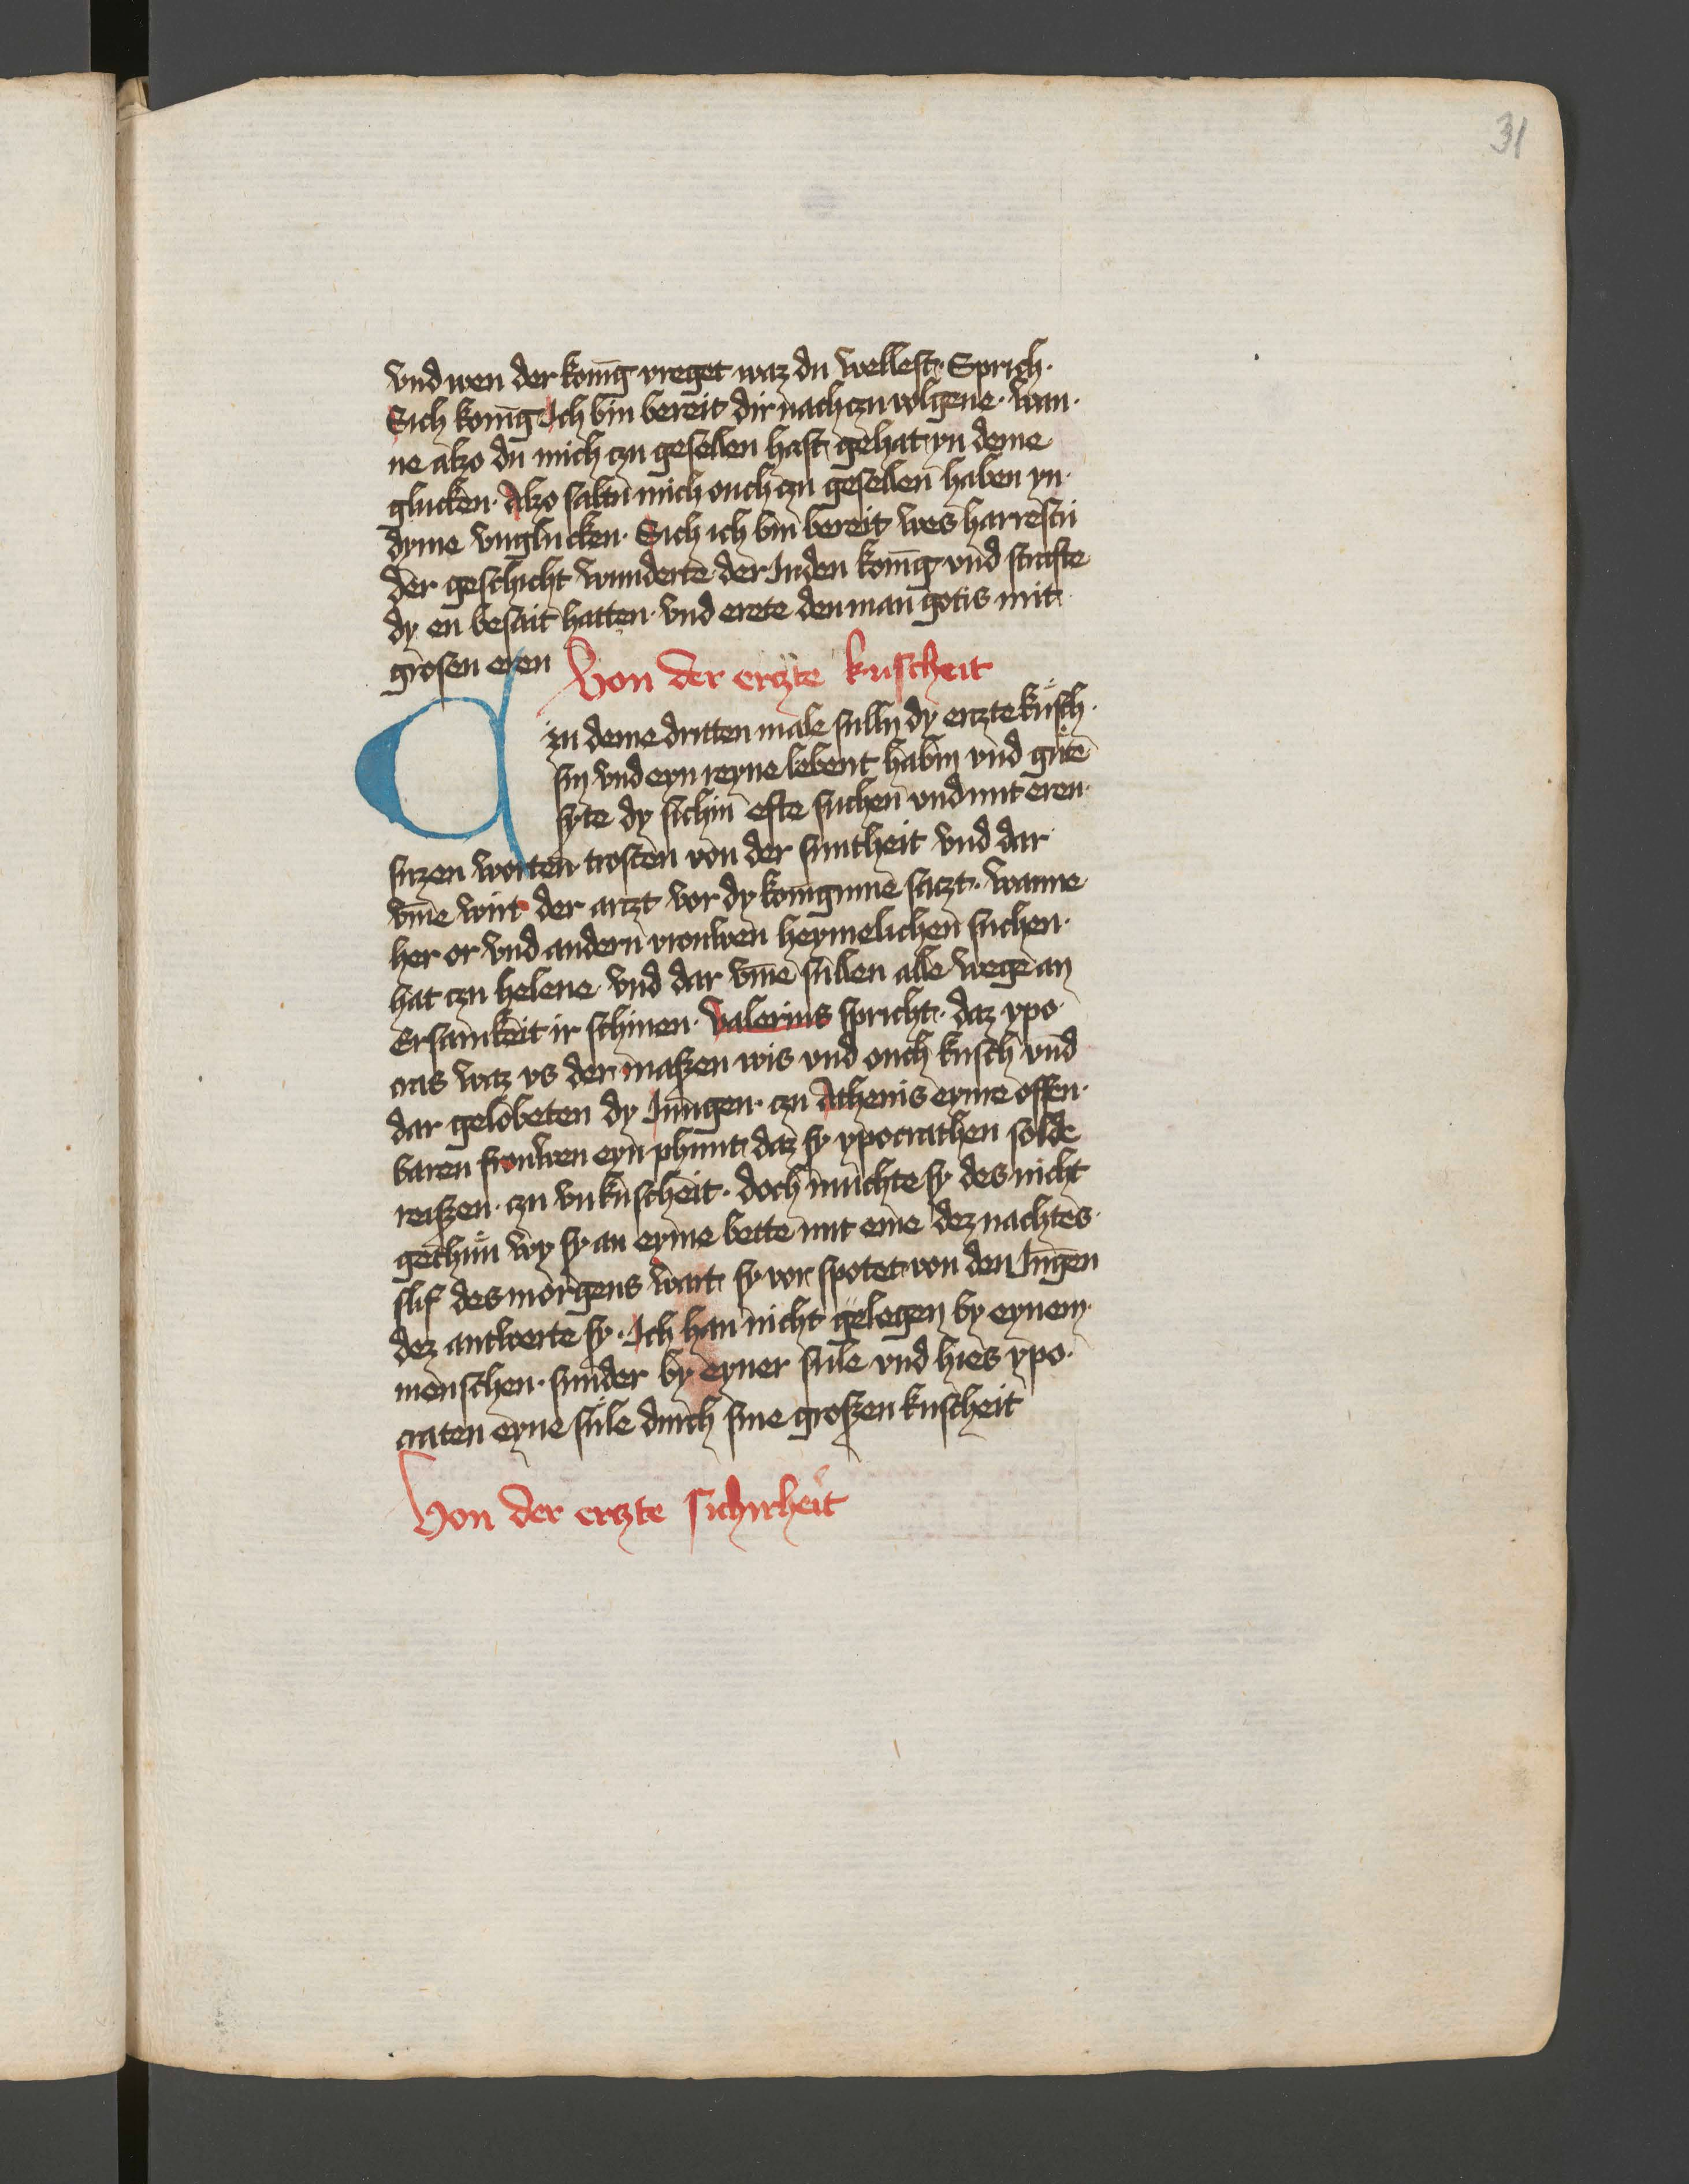 31
vnd wen der konig vreget waz du wellest· Sprich·
Sich konig Ich bin bereit dir nach czu volgene· wan·
ne alzo du mich czu gesellen hast gehat yn deme
glucken· Alzo saltu mich ouch czu gesellen haben yn·
dyme vnglucken· Sich ich bin bereit wes harrestu
der geschicht wunderte der Iuden konig vnd strafte
dy en besait hatten· vnd erete den man gotis mit
grosen eren Von der erczte kuscheit
in deme dritten male sulln dy erczte kusch·
sin vnd eyn reyne lebent habin vnd gute
syte dy sichin ofte suchen vnd mit eren·
suzen worten trosten von der suntheit vnd dar
vme wirt der arczt vor dy koniginne saczt· wanne
her or vnd andern vrouwen heymelichen suchen·
hat czu helene· vnd dar vme sullen alle wege an
Ersamkeit ir schinen· Valerius spricht· daz ypo·
cras waz vs der maszen wis vnd ouch kusch vnd
dar gelobeten dy Iungen· czu Athenis eyme offen·
baren frouwen eyn phunt daz sy ypocrathen solde
reiszen· czu vnkuscheit· doch muchte sy des nicht
gethun wy sy an eyme bette mit eme dez nachtes·
slif des morgens wart sy vor spotet von den Iungen
dez antwerte sy· Ich han nicht gelegen by eynem·
menschen· sunder by eyner sule vnd hies ypo·
craten eyne sule durch sine groszen kuscheit
Von der erczte sichirheit